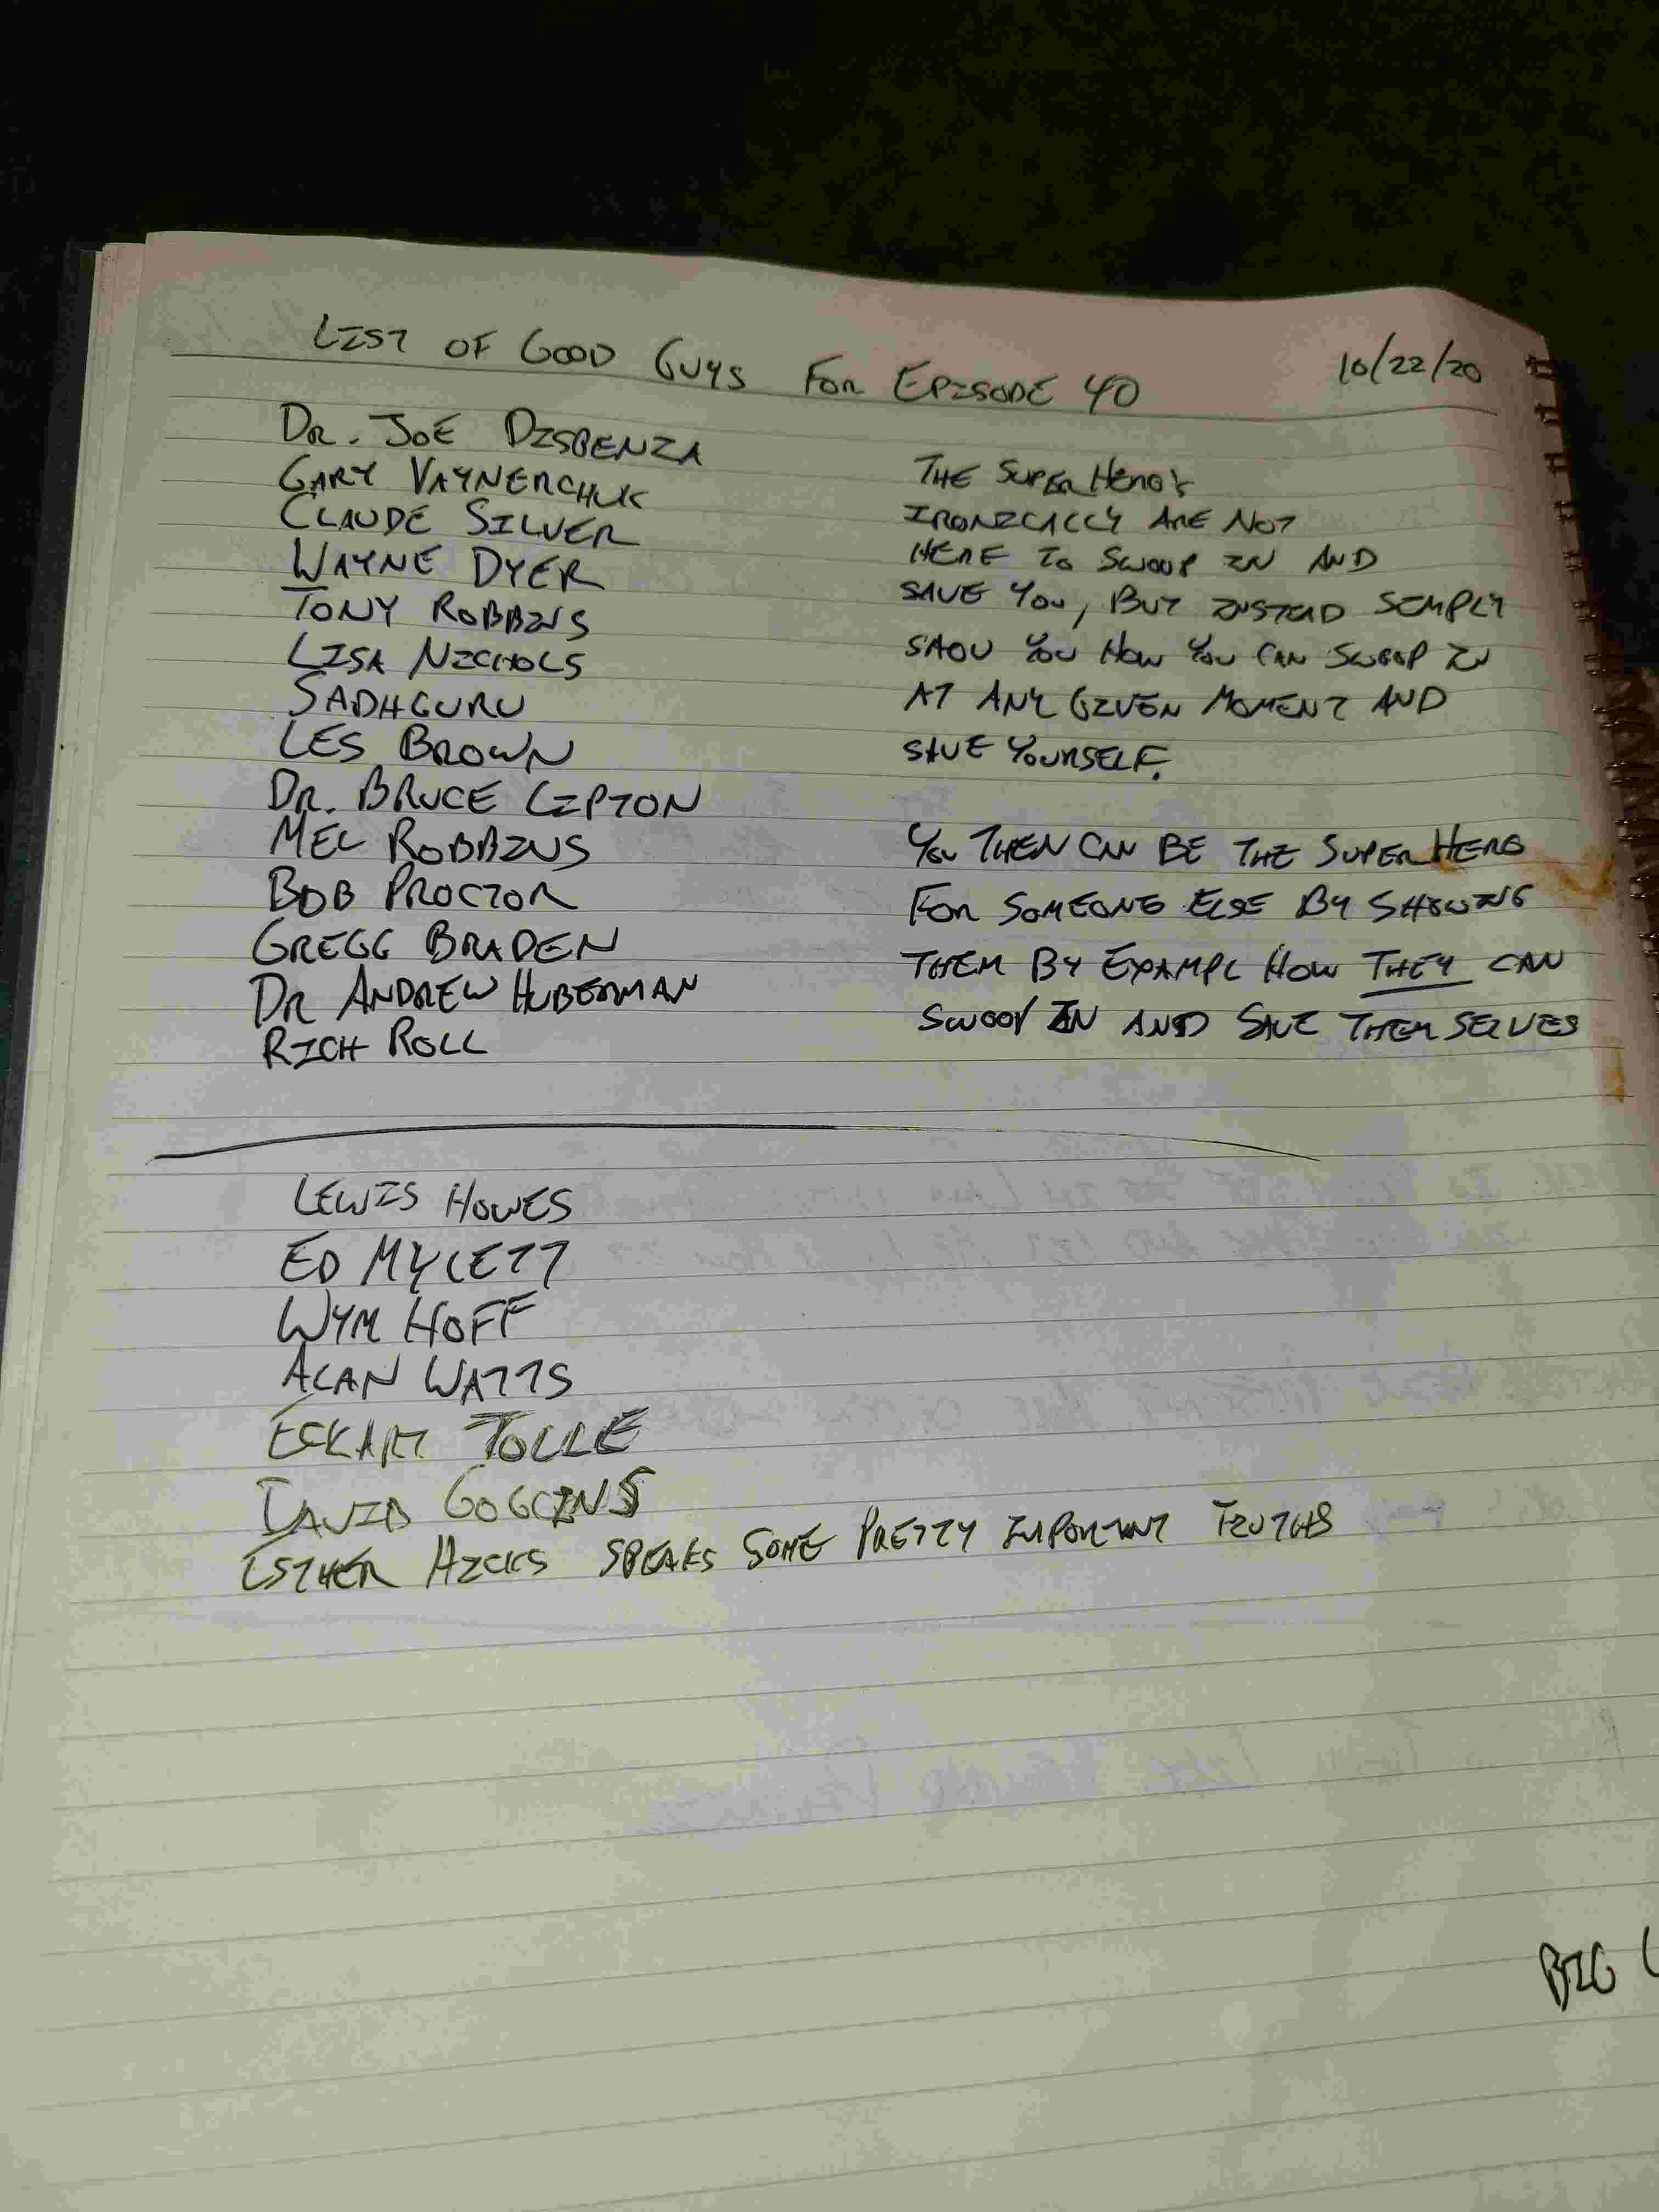 LIST OF GOOD GUYS FOR EPISODE 40
10/22/20
DR. JOE DISPENZA
GARY VAYNERCHUK
CLAUDE SILVER
WAYNE DYER
TONY ROBBINS
LISA NICHOLS
SADHGURU
LES BROWN
DR. BRUCE LIPTON
MEL ROBBINS
BOB PROCTOR
GREGG BRADEN
DR ANDREW HUBERMAN
RICH ROLL
THE SUPER HERO'S
IRONICALLY ARE NOT
HERE TO SWOOP IN AND
SAVE YOU, BUT INSTEAD SIMPLY
SHOW YOU HOW YOU CAN SWOOP IN
AT ANY GIVEN MOMENT AND
SAVE YOURSELF.
YOU THEN CAN BE THE SUPER HERO
FOR SOMEONE ELSE BY SHOWING
THEM BY EXAMPL HOW THEY CAN
SWOOP IN AND SAVE THEM SELVES
LEWIS HOWES
ED MYLETT
WYM HOFF
ALAN WATTS
ECKART TOLLE
DAVID GOGGINS
ESTHER HICKS SPEAKS SOME PRETTY IMPORTANT TRUTHS
BIG